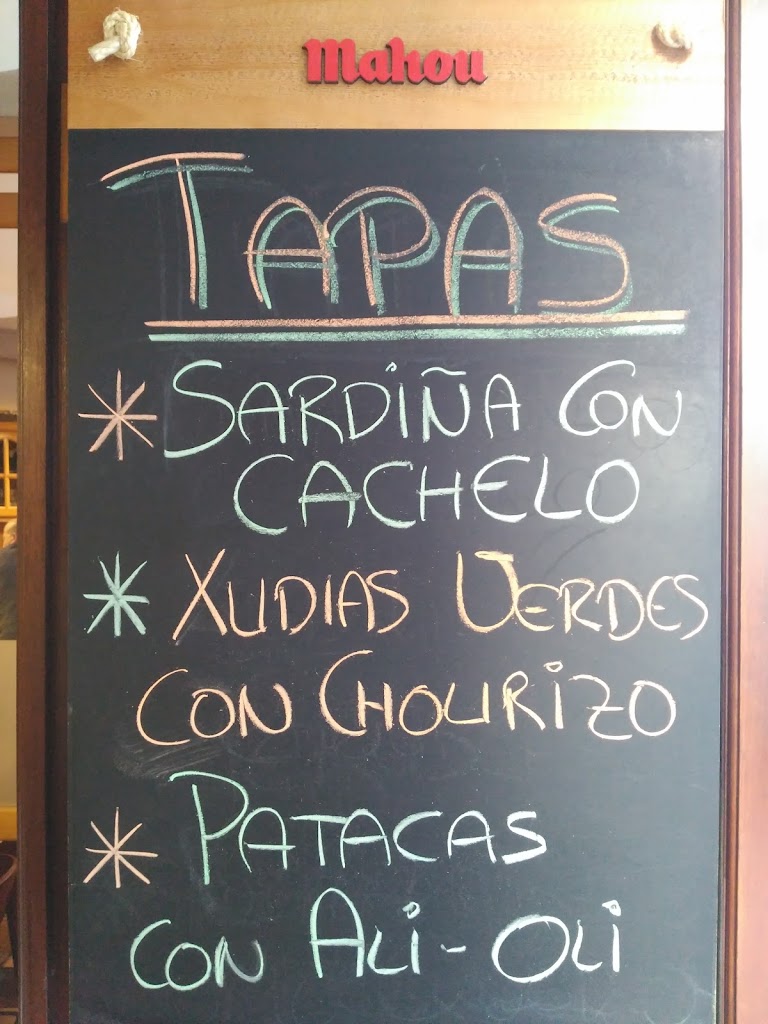 Mahou
TAPAS
* SARDIÑA CON
CACHELO
* XUDIAS VERDES
CON CHOURIZO
* PATACAS
CON ALI-OLI